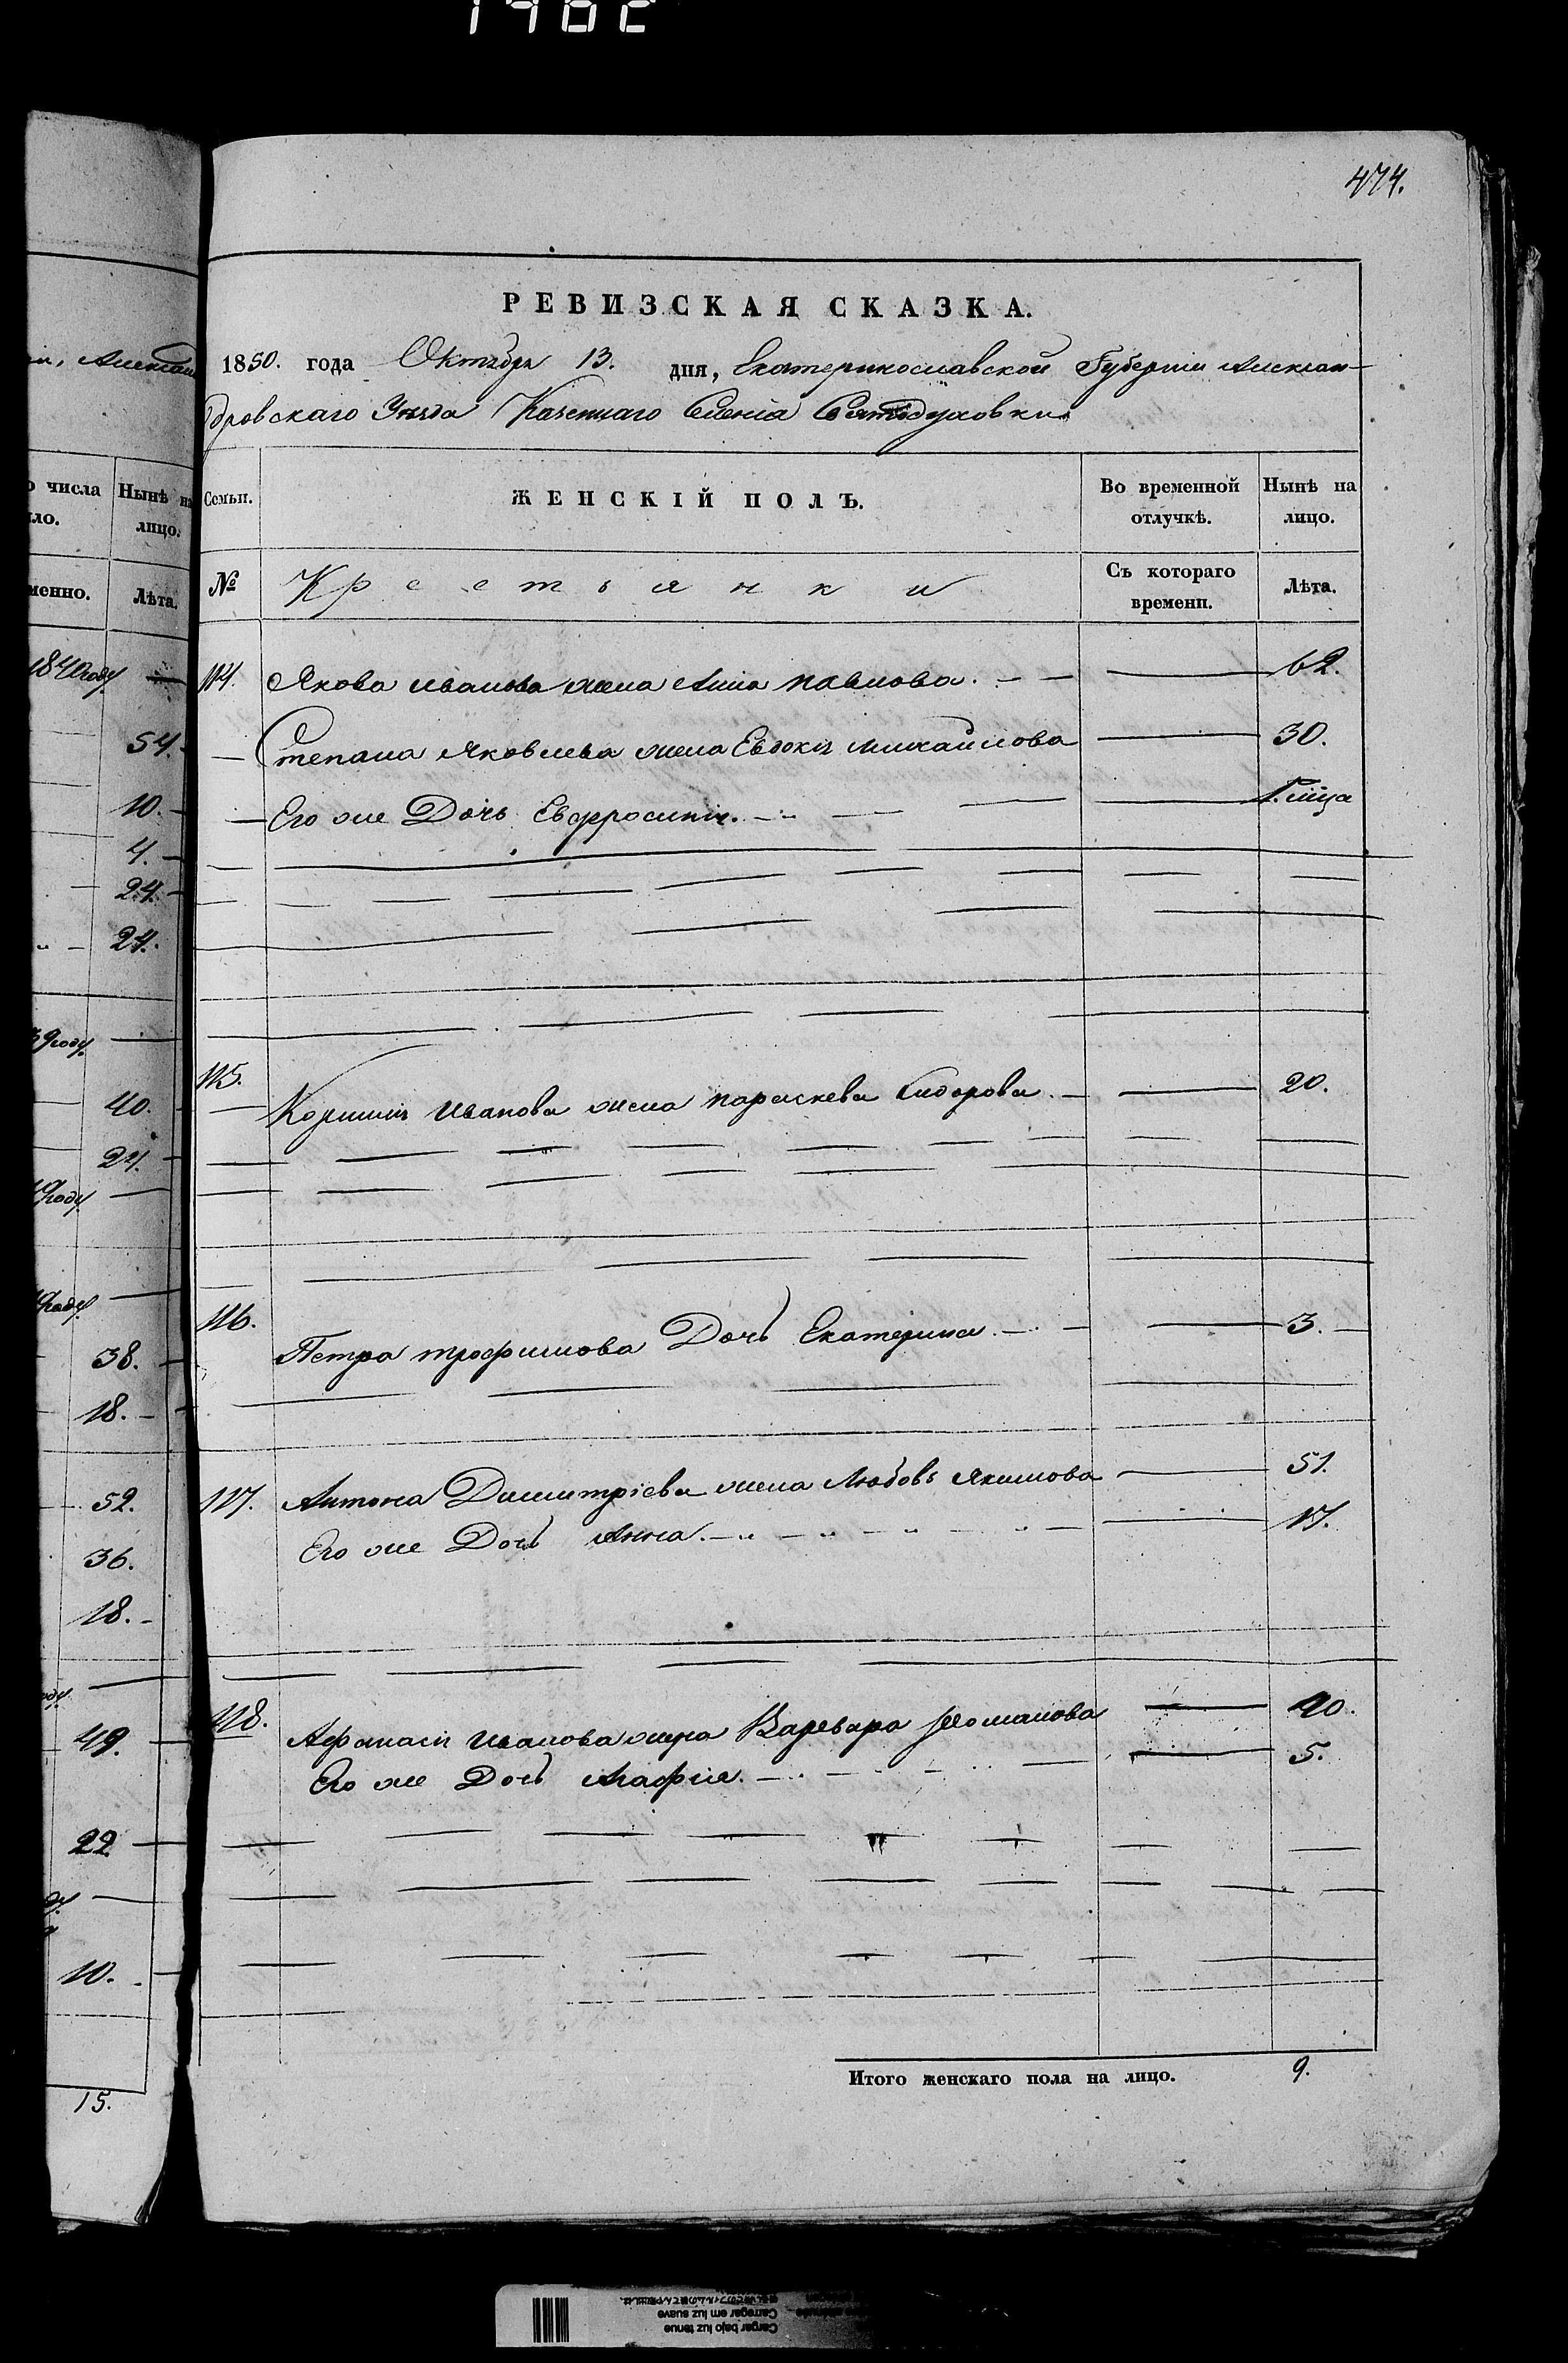 1962
474.
РЕВИЗСКАЯ СКАЗКА.
1850. года Октября 13. дня, Екатеринославской Губерніи Алексан-
дровскаго Уѣзда Казеннаго Селенія Святодуховки
Семьи.
ЖЕНСКІЙ ПОЛЪ.
Во временной отлучкѣ.
Нынѣ на лицо.
№
Крестьянки
Съ котораго времени.
Лѣта.
114. Якова иванова жена Анна павлова. 62.
Степана Яковлева жена Евдокія михайлова 30.
Его же Дочь Евфросинія. 1. мца
115.
Корнилія Иванова жена параскева Сидорова. 20.
116.
Петра трофимова Дочь Екатерина. 3.
117. Антона Димитріева жена Любовь Якимова 51.
Его же Дочь Анна. 17.
118.
Афанасія Иванова жена Варвара Романова 20.
Его же Дочь Агафія. 5.
Итого женскаго пола на лицо. 9.
числа
Нынѣ на
ло.
лицо.
менно.
Лѣта.
1840 году
54.
10.
4.
24.
24.
39 году
40.
24.
году
году
38.
18.
52.
36.
18.
49.
22
10.
15.
Cargar bajo luz tenue
Carregar em luz suave